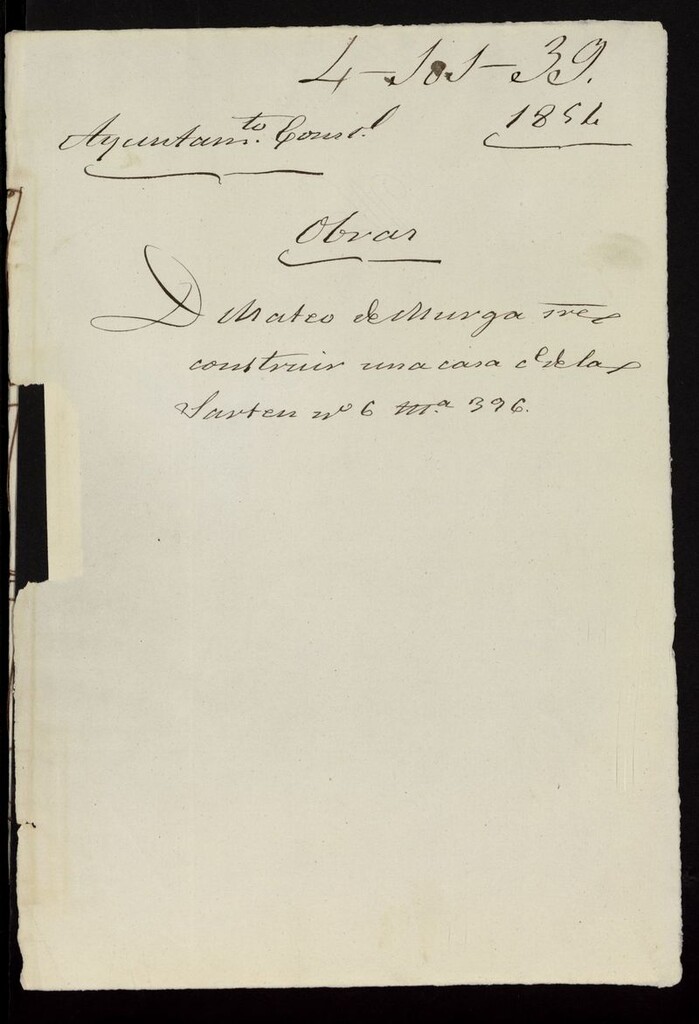 4-101-39.
Ayuntam.to Const.l 1854
Obras
D Mateo de Murga sre
construir una casa c.e de la
Sarten nº 6 m.a 396.